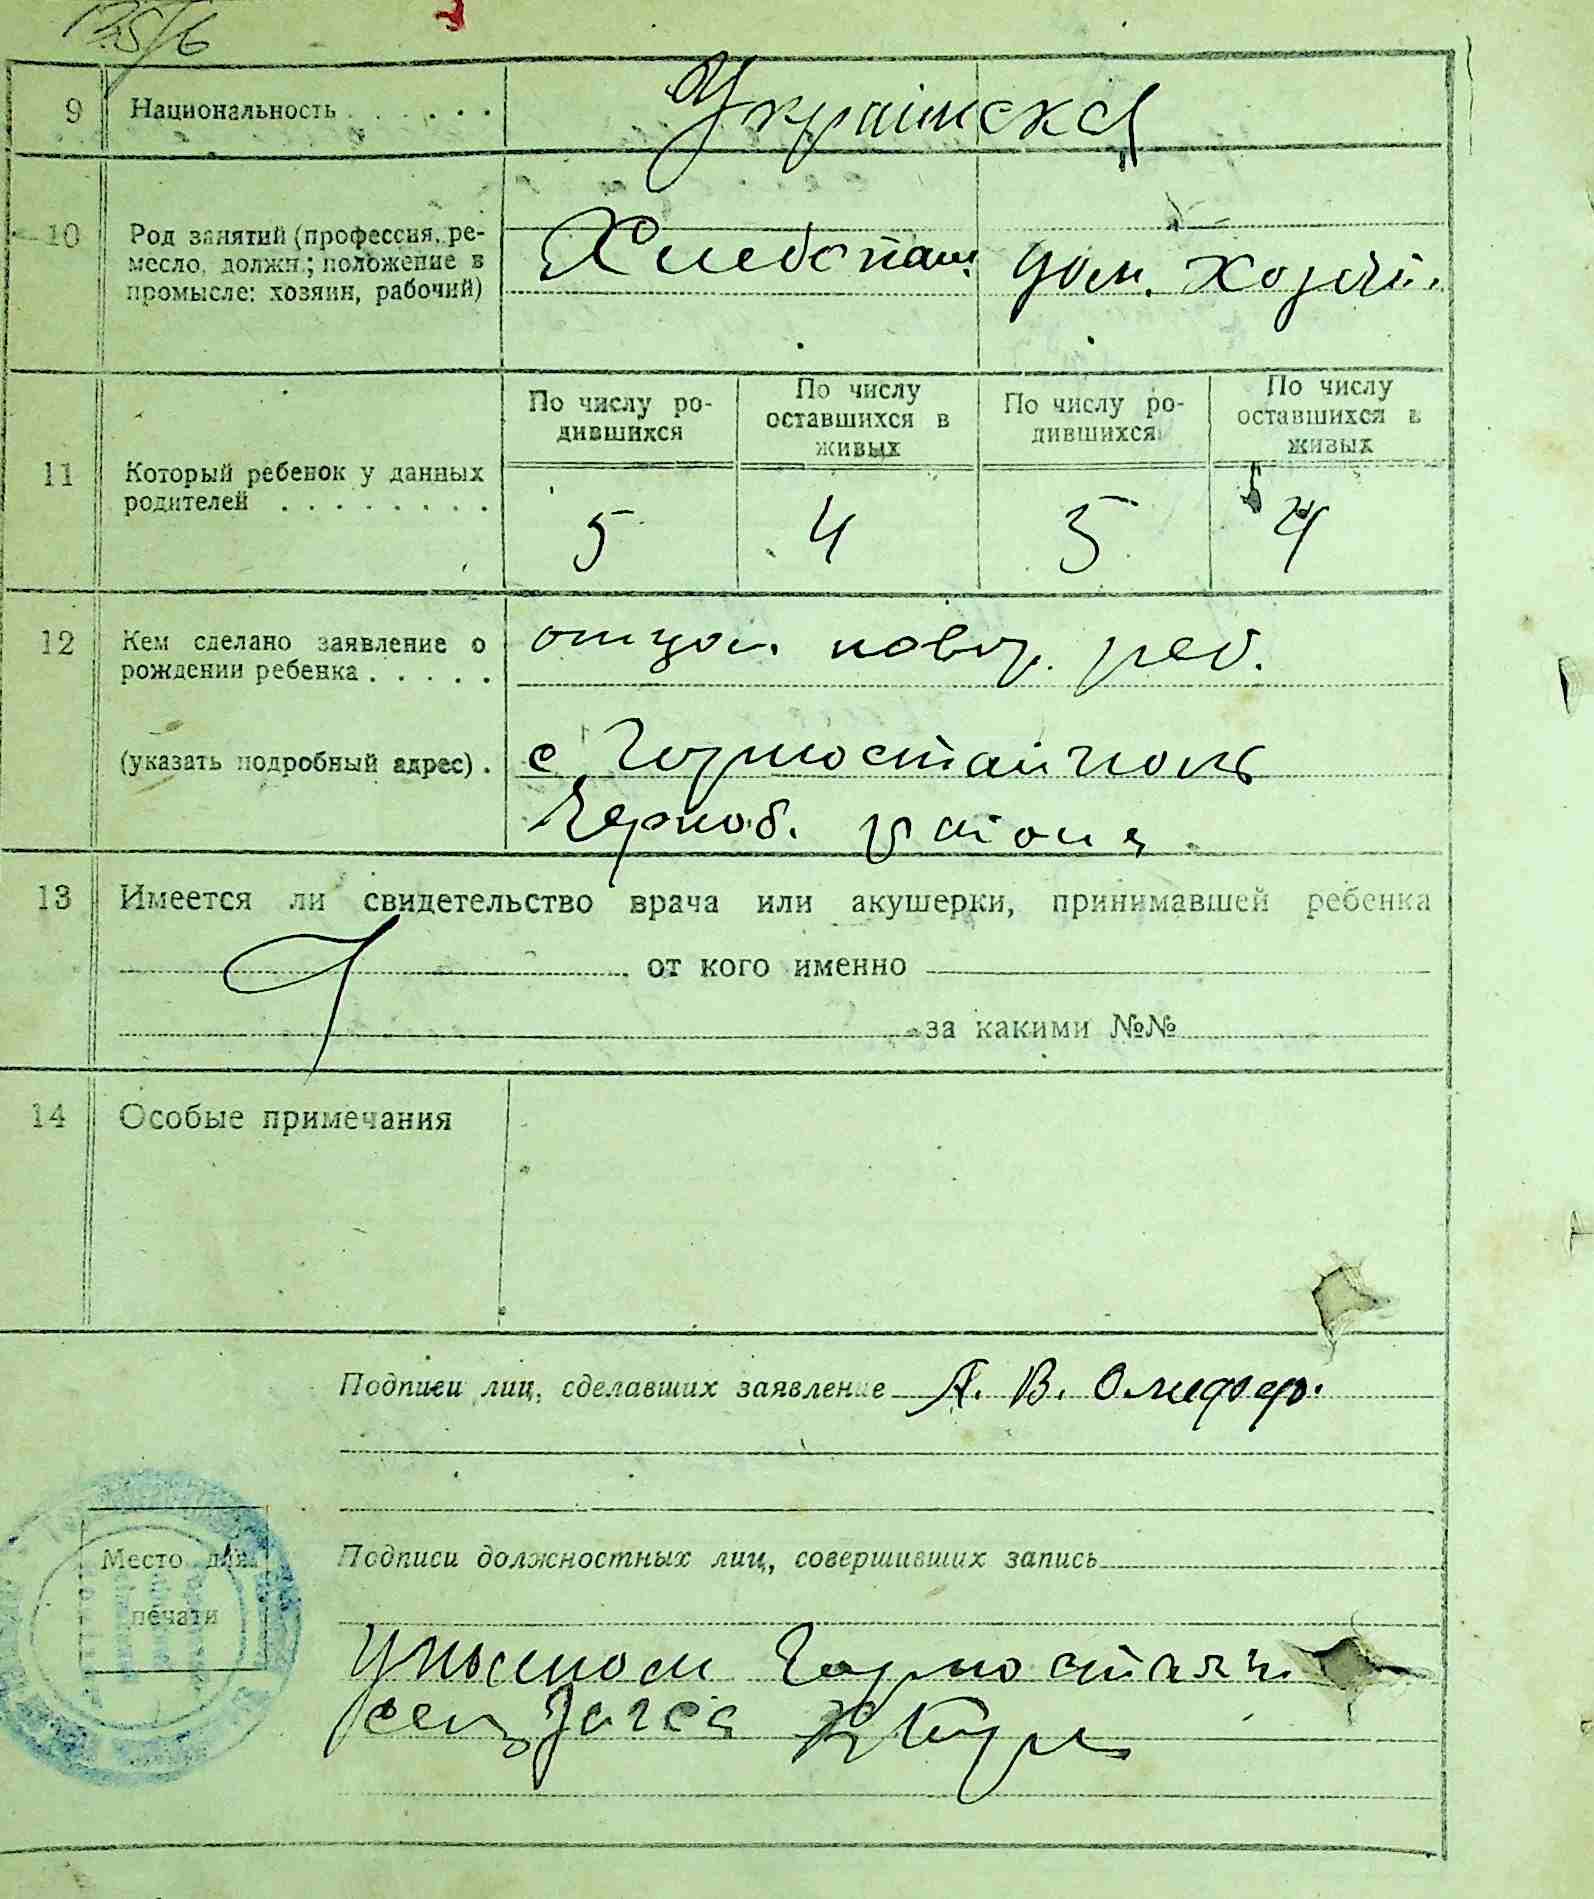 125/6
9 Национальность . . . . . . Украінска
10 Род занятий (профессия, ре-
месло, должн.; положение в
промысле: хозяин, рабочий)
Хлебопаш. дом. хозяй.
По числу ро-
дившихся
По числу
оставшихся в
живых
По числу ро-
дившихся
По числу
оставшихся в
живых
11 Который ребенок у данных
родителей . . . . . . . .
5 4 5 4
12 Кем сделано заявление о
рождении ребенка . . . . .
отцом новор. реб.
(указать подробный адрес) .
с. Горностайполь
Черноб. района
13 Имеется ли свидетельство врача или акушерки, принимавшей ребенка
от кого именно
за какими №№
14 Особые примечания
Подписи лиц, сделавших заявление А. В. Олифир.
Место для
печати
Подписи должностных лиц, совершивших запись
Горностайп.
Загса